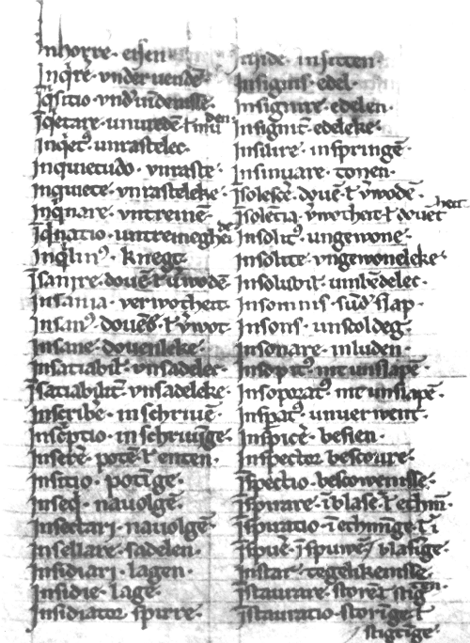 Inhorre · eisen ·
Inqͥre · vnderuende ·
Iqͥsitio · vndͥuindenisse ·
Iqͥetare · unvredē ł inu den
Inqͥetꝰ · unrastelec ·
Inquietudo · vnraste ·
Inquiete · vnrasteleke ·
Inqͥnare · vntreinē ·
Iqͥnatio · untreineghe de
Inqͥlinꝰ · knegt ·
Isanire · douē ł v̓wodē
Insania · verwotheit
Insanꝰ · douē ł v̓wot
Insane · douenleke ·
Insatiabil̓ · vnsadelec ·
Isatiabilit̓ · vnsadeleke ·
Inscribē · in schriuē ·
Inscͥptio · in schriuīge ·
Inserē · potē ł enten ·
Insitio · potīge ·
Inseqͥ · navolgē ·
Insectari · navolgē ·
Insellare · sadelen ·
Insidiari · lagen ·
Insidie · lage ·
Insidiator · spirre ·
insitten ·
Insignis · edel ·
Insignire · edelen ·
Insignit̓ · edeleke ·
Insilire · inspringē ·
Insinuare · tonen ·
Isolescē · douē ł v̓wodē ·
Isolētia · v̓wotheit ł douet heit ·
Insolitꝰ · ungewone ·
Insolite · vngewoneleke ·
Insolubil̓ · umbēdelec ·
Insomnis · sūd̓ slap ·
Insons · unscoldeg ·
Insonare · inluden ·
Insopit̓ · nit unslapē ·
Insoporatꝰ · nit unslapē ·
Inspatꝰ · unverwent ·
Inspicē · besien ·
Inspector · bescoure ·
Ispectio · bescowenisse ·
Ispirare · ī blasē ł
Ispiratio · ł ī
Ispuē · ī spuwē / blasīge ·
Instar · tegelikenisse ·
Istaurare · storē ł stig en ·
Istauratio · storīge ł
stigīge ·